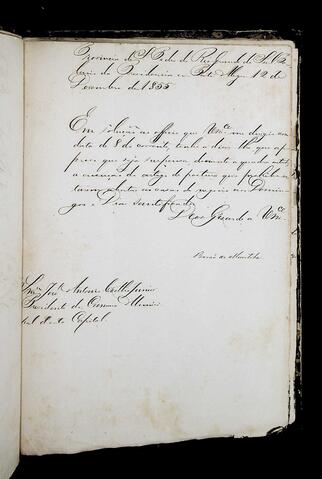 Provincia de S. Pedro do Rio Grande do Sul Pa-
lacio da Presidencia em Porto Alegre 12 de
Dezembro de 1855
Em solução ao officio que Vm.ce me dirigio com
data de 8 do corrente, tenho a dizer lhe que ap-
provo que seja suspensa durante a quadra actual
a execução do artigo de postura que prohibe
abertas as casas de negocio em Domin-
gos e Dias Santificados.
Deos Guarde a Vm.ce
Barão de Muritiba
Snr. José Antonio Coelho Junior
Presidente da Camara Munici-
pal desta Capital